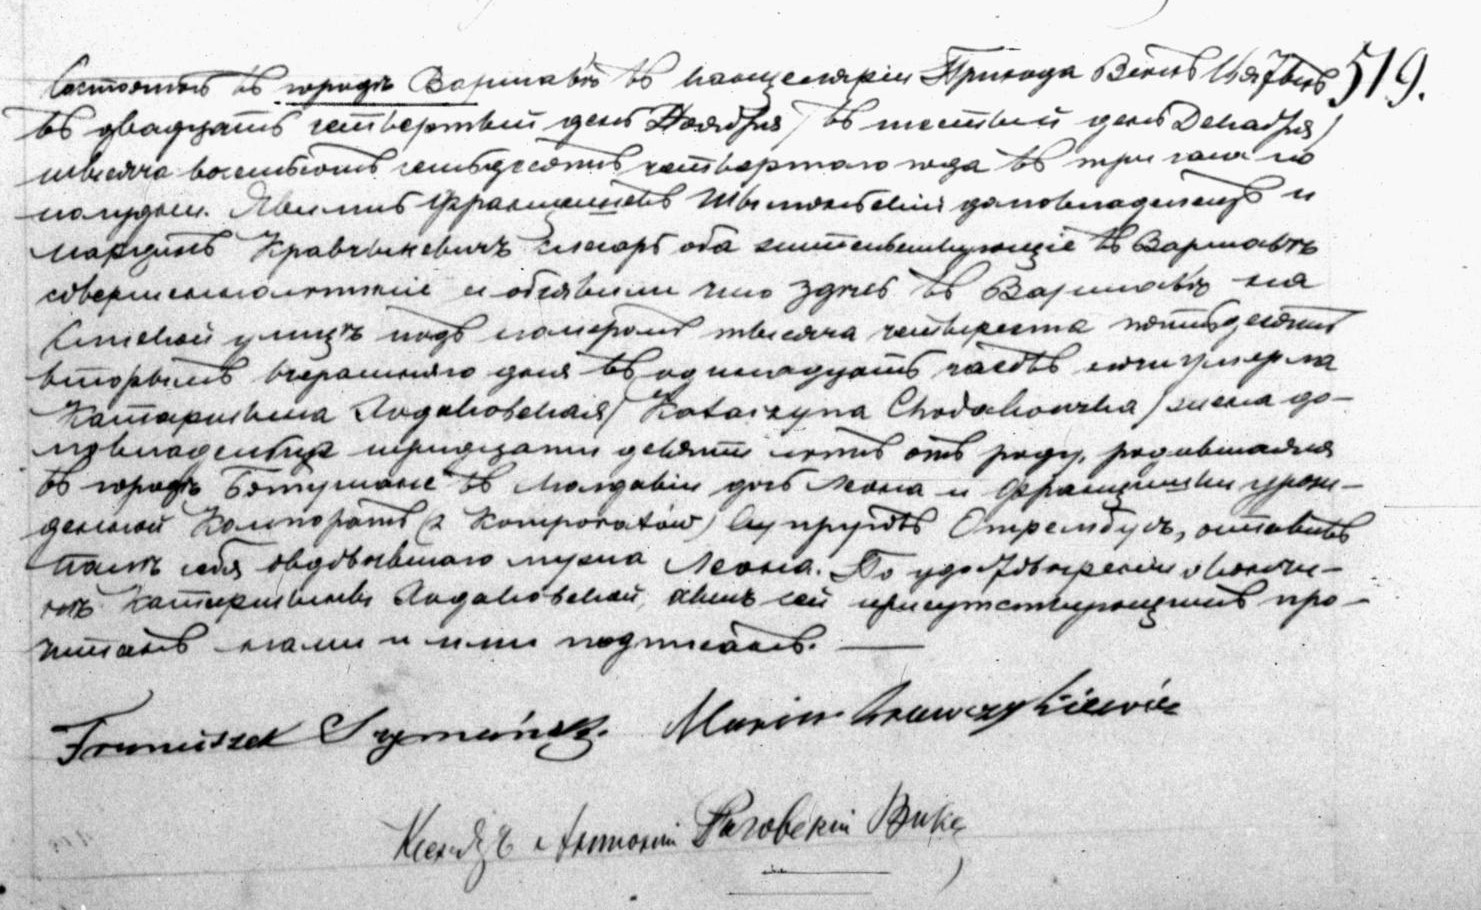 Состоялось въ городѣ Варшавѣ въ канцелярiи Прихода Всѣхъ Святыхъ 519.
въ двадцать четвертый день Ноября / въ шестый день Декабря /
тысяча восемьсотъ семьдесятъ четвертаго года въ три часа по
полудни. Явились Францишекъ Шыманьскiй домовладелецъ и
Марцинъ Кравчыкевичъ слесарь оба жительствующiе въ Варшавѣ
совершеннолѣтнiе и объявили что здѣсь въ Варшавѣ на
улицѣ подъ номеромъ тысяча четыреста пятьдесятъ
вторымъ вчерашняго дня въ одинадцать часовъ ночи умерла
Катаржина Ходаковская / Katarzyna Chodakowska / жена до-
мовладельца тридцати девяти лѣтъ отъ роду, родившаяся
въ городѣ Ботушане въ Молдавiи дочь Леона и Францишки урож-
денной Компоратъ (z Komporatów) супруговъ Стрембушъ, оставивъ
по себѣ овдовѣвшаго мужа Леона. По удостовѣренiи о кончи-
нѣ Катаржины Ходаковской, актъ сей присутствующимъ про-
читанъ нами и ими подписанъ. —
Franciszek Szymański. Marcin Krawczykiewicz
Ксендзъ Антонiй Роговскiй Вик